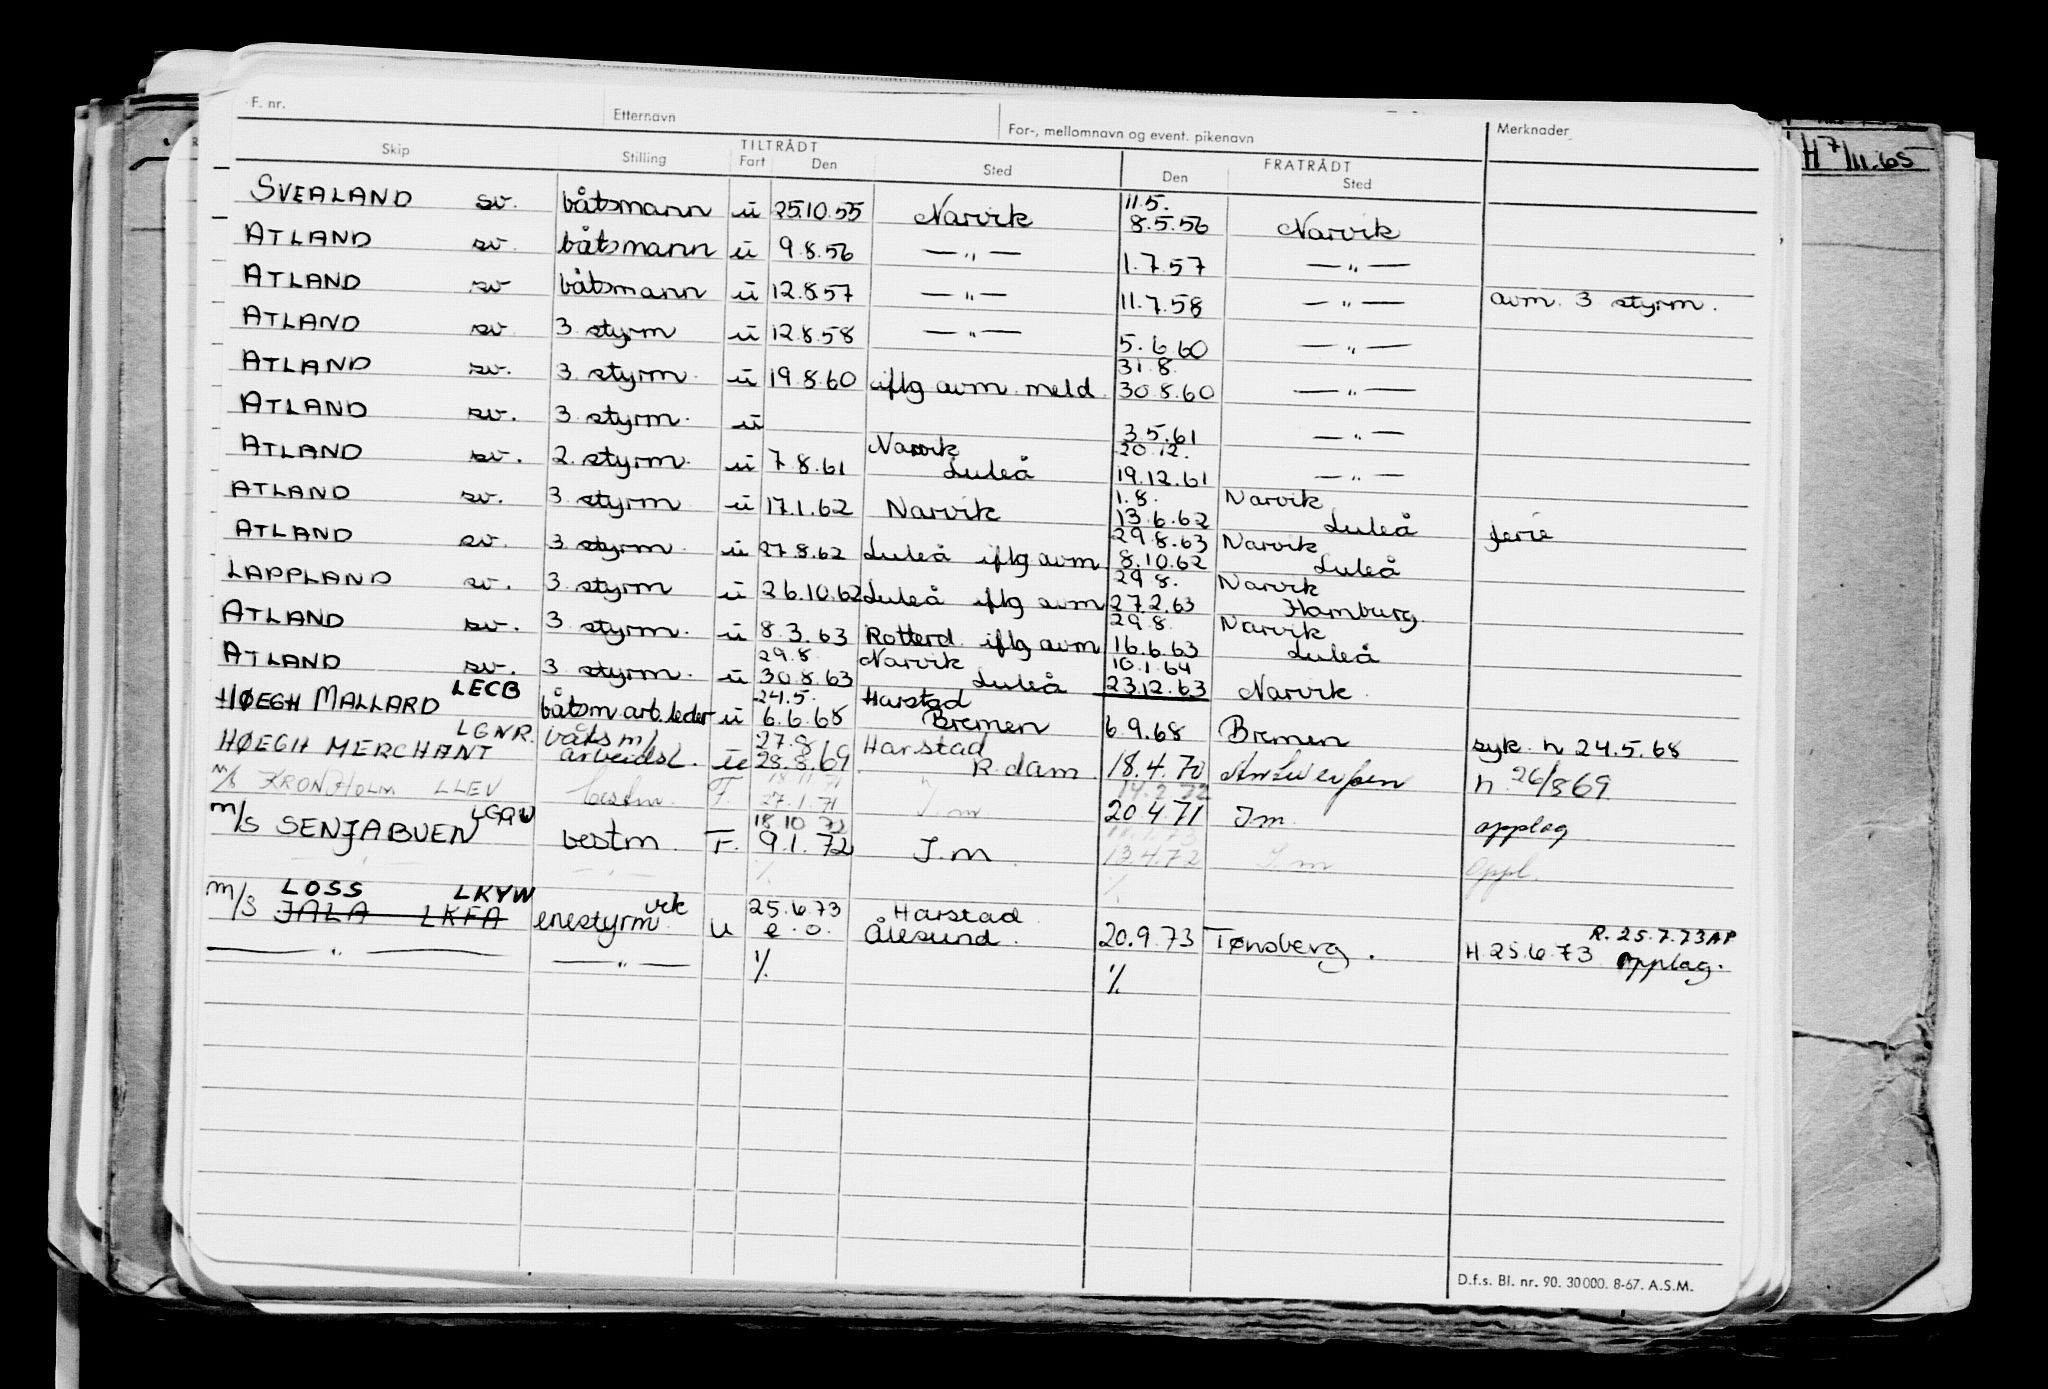 F. nr. Etternavn For-, mellomnavn og event. pikenavn Merknader
H 7/11.65
TILTRÅDT FRATRÅDT
Skip Stilling Fart Den Sted Den Sted
11.5.
SVEALAND sv. båtsmann u 25.10.55 Narvik 8.5.56 Narvik
ATLAND sv. båtsmann u 9.8.56 —„— 1.7.57 —„—
ATLAND sv båtsmann u 12.8.57 —„— 11.7.58 —„— avm. 3 styrm.
ATLAND sv. 3 styrm u 12.8.58 —„— 5.6.60 —„—
31.8.
ATLAND sv. 3 styrm. u 19.8.60 iflg avm. meld. 30.8.60 —„—
ATLAND sv. 3 styrm. u 3.5.61 —„—
Narvik 20.12.
ATLAND sv. 2. styrm. u 7.8.61 Luleå 19.12.61 —„—
1.8. Narvik
ATLAND sv. 3 styrm u 17.1.62 Narvik 13.6.62 Luleå ferie
29.8.63 Narvik
ATLAND sv. 3 styrm. u 27.8.62 Luleå iflg avm. 8.10.62 Luleå
29.8. Narvik
LAPPLAND sv. 3 styrm u 26.10.62 Luleå iflg avm 27.2.63 Hamburg
29.8. Narvik
ATLAND sv. 3 styrm. u 8.3.63 Rotterd. iflg avm 16.6.63 Luleå
29.8. Narvik 10.1.64
ATLAND sv. 3 styrm. u 30.8.63 Luleå 23.12.63 Narvik.
LECB 24.5. Harstad
HØEGH MALLARD båtsm arb.leder u 6.6.68 Bremen 6.9.68 Bremen syk. h 24.5.68
LGNR. båtsm/ 27.8. Harstad
HØEGH MERCHANT arbeidsl. u 28.8.69 R.dam 18.4.70 Antwerpen h. 26/8 69
18.11.71 14.2.72
m/s KRONHOLM LLEV bestm. F. 27.1.71 I.m 20.4.71 I.m. opplag
LGQW 18.10 72
m/s SENJABUEN bestm. F. 9.1.72 I.m. 13.4.72 I.m oppl.
—„— ./. ./.
LOSS LKYW vik 25.6.73 Harstad R. 25.7.73 AP
m/s JALA LKFA enestyrm. u e.o. Ålesund. 20.9.73 Tønsberg. H. 25.6.73 opplag.
—„— —„— ./. ./.
D.f.s. Bl. nr. 90. 30 000. 8-67. A.S.M.